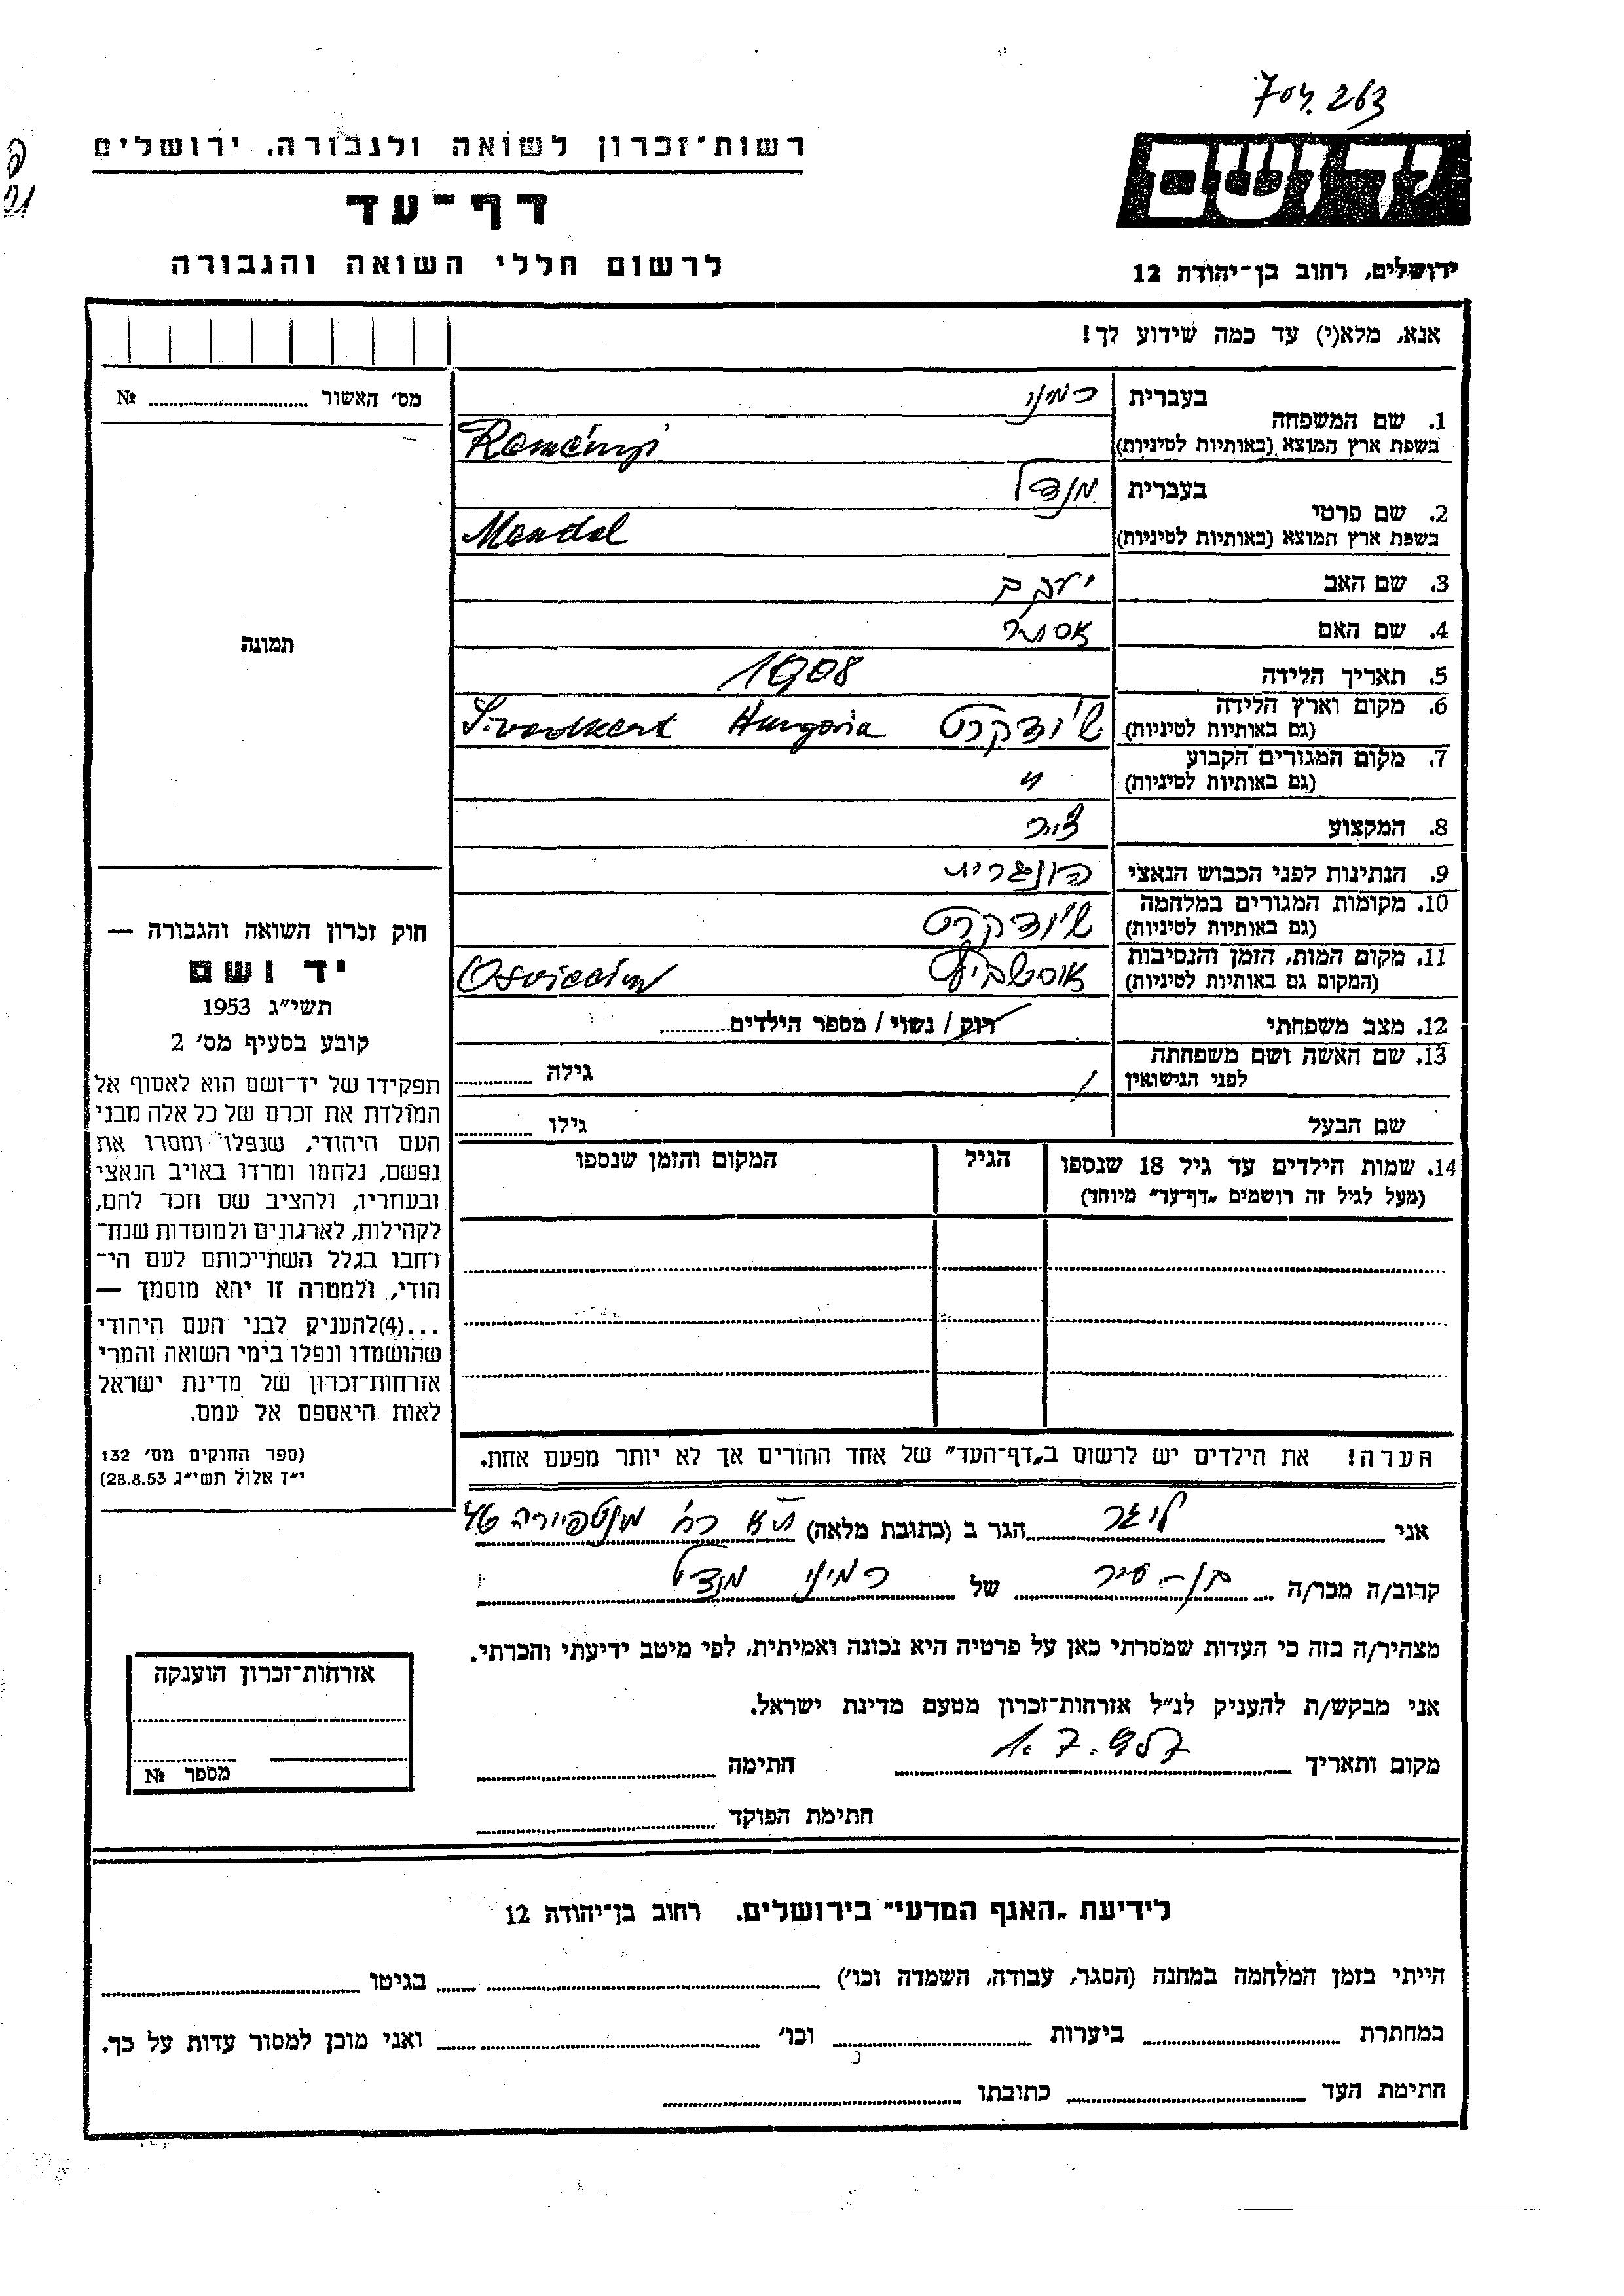 704.263
יד ושם
רשות־זכרון לשואה ולגבורה, ירושלים
דף־עד
לרשום חללי השואה והגבורה
ירושלים, רחוב בן־יהודה 12
אנא, מלא(י) עד כמה שידוע לך!
מס׳ האשור № 
1. שם המשפחה
בעברית רמיני
בשפת ארץ המוצא (באותיות לטיניות) Reményi
2. שם פרטי
בעברית מנדל
בשפת ארץ המוצא (באותיות לטיניות) Mendel
3. שם האב יעקב
4. שם האם אסתר
5. תאריך הלידה 1908
6. מקום וארץ הלידה שוודקרט Hungaria
(גם באותיות לטיניות)
7. מקום המגורים הקבוע "
(גם באותיות לטיניות)
8. המקצוע צייר
9. הנתינות לפני הכבוש הנאצי הונגרית
10. מקומות המגורים במלחמה שוודקרט
(גם באותיות לטיניות)
11. מקום המות, הזמן והנסיבות Osviecim
(המקום גם באותיות לטיניות)
12. מצב משפחתי רוק / נשוי / מספר הילדים
13. שם האשה ושם משפחתה
לפני הנישואין
גילה
שם הבעל
גילו
14. שמות הילדים עד גיל 18 שנספו
(מעל לגיל זה רושמים „דף־עד" מיוחד)
הגיל
המקום והזמן שנספו
הערה! את הילדים יש לרשום ב„דף־העד" של אחד ההורים אך לא יותר מפעם אחת.
תמונה
חוק זכרון השואה והגבורה —
יד ושם
תשי״ג 1953
קובע בסעיף מס׳ 2
תפקידו של יד־ושם הוא לאסוף אל
המולדת את זכרם של כל אלה מבני
העם היהודי, שנפלו ומסרו את
נפשם, נלחמו ומרדו באויב הנאצי
ובעוזריו, ולהציב שם וזכר להם,
לקהילות, לארגונים ולמוסדות שנח־
רבו בגלל השתייכותם לעם הי־
הודי, ולמטרה זו יהא מוסמך —
...(4) להעניק לבני העם היהודי
שהושמדו ונפלו בימי השואה והמרי
אזרחות־זכרון של מדינת ישראל
לאות היאספם אל עמם.
(ספר החוקים מס׳ 132
י״ז אלול תשי״ג 28.8.53)
אני הגר ב (כתובת מלאה) ת״א רח׳ מונטפיורה 46
קרוב/ה מכר/ה בן-העיר של רמיני מנדל
מצהיר/ה בזה כי העדות שמסרתי כאן על פרטיה היא נכונה ואמיתית, לפי מיטב ידיעתי והכרתי.
אני מבקש/ת להעניק לנ״ל אזרחות־זכרון מטעם מדינת ישראל.
מקום ותאריך חתימה
חתימת הפוקד
אזרחות־זכרון הוענקה
מספר №
לידיעת „האגף המדעי" בירושלים, רחוב בן־יהודה 12
הייתי בזמן המלחמה במחנה (הסגר, עבודה, השמדה וכו׳) בגיטו
במחתרת ביערות וכו׳ ואני מוכן למסור עדות על כך.
חתימת העד כתובתו